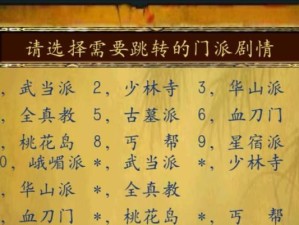 请选择需要跳转的门派剧情
, 武当派 2, 少林寺 3, 华山派
, 全真教 5, 古墓派 6, 血刀门
, 桃花岛 8, 丐 帮 9, 星宿派
0, 峨嵋派 *, 武当派 *, 少林寺
, 华山派 *, 全真教
, 血刀门 *, 桃花岛 *, 丐 帮